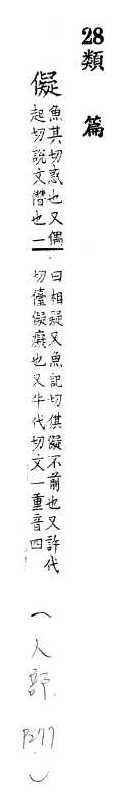 28 類篇
儗
魚其切惑也又偶
起切說文僭也一
曰相疑又魚記切佁儗不前也又許代
切儓儗癡也又牛代切文一重音四
(人部 P277)